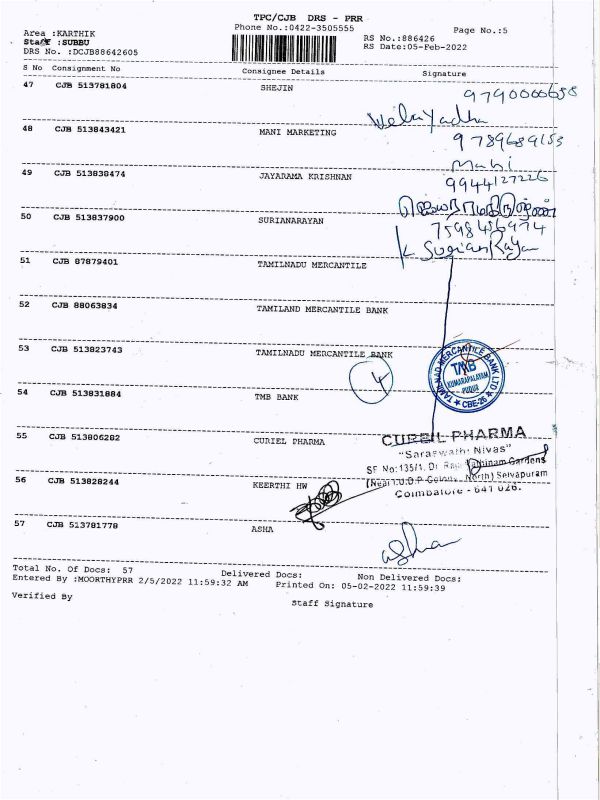 TPC/CJB DRS - PRR
Phone No.:0422-3505555
Page No.:5
Area :KARTHIK
Staff :SUBBU
DRS No. :DCJB88642605
RS No.:886426
RS Date:05-Feb-2022
S No Consignment No Consignee Details Signature
47 CJB 513781804 SHEJIN
9790000658
Velayadha
48 CJB 513843421 MANI MARKETING
9789689153
Mani
49 CJB 513838474 JAYARAMA KRISHNAN
9944127226
50 CJB 513837900 SURIANARAYAN
7598456974
K
51 CJB 87879401 TAMILNADU MERCANTILE
52 CJB 88063834 TAMILAND MERCANTILE BANK
53 CJB 513823743 TAMILNADU MERCANTILE BANK
4
TAMILNAD MERCANTILE BANK LTD
TMB
KUMARAPALAYAM
CBE-26
54 CJB 513831884 TMB BANK
55 CJB 513806282 CURIEL PHARMA
CUREIL PHARMA
"Saraswathi Nivas"
SF No:135/1, Dr. Raja Rathinam Gardens
(Near T.U.D.P Colony, North) Selvapuram
Coimbatore - 641 026.
56 CJB 513828244 KEERTHI HW
57 CJB 513781778 ASHA
asha
Total No. Of Docs: 57 Delivered Docs: Non Delivered Docs:
Entered By :MOORTHYPRR 2/5/2022 11:59:32 AM Printed On: 05-02-2022 11:59:39
Verified By
Staff Signature